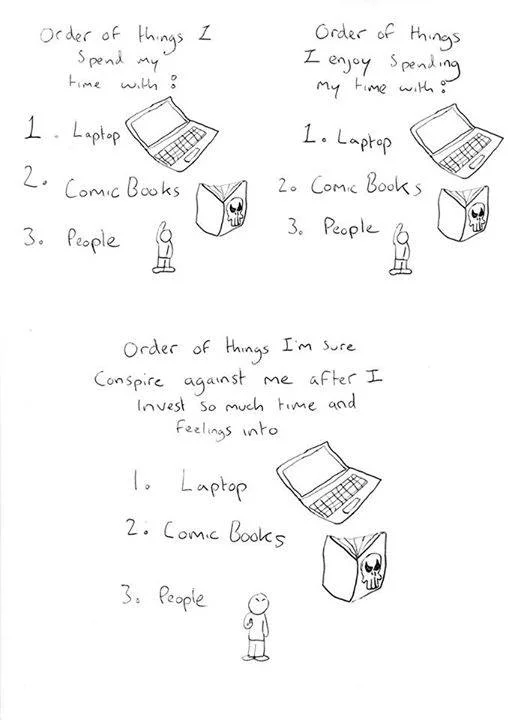 Order of things I
Spend my
time with:
1. Laptop
2. Comic Books
3. People
Order of things
I enjoy Spending
my time with:
1. Laptop
2. Comic Books
3. People
Order of things I'm sure
Conspire against me after I
Invest so much time and
feelings into
1. Laptop
2. Comic Books
3. People